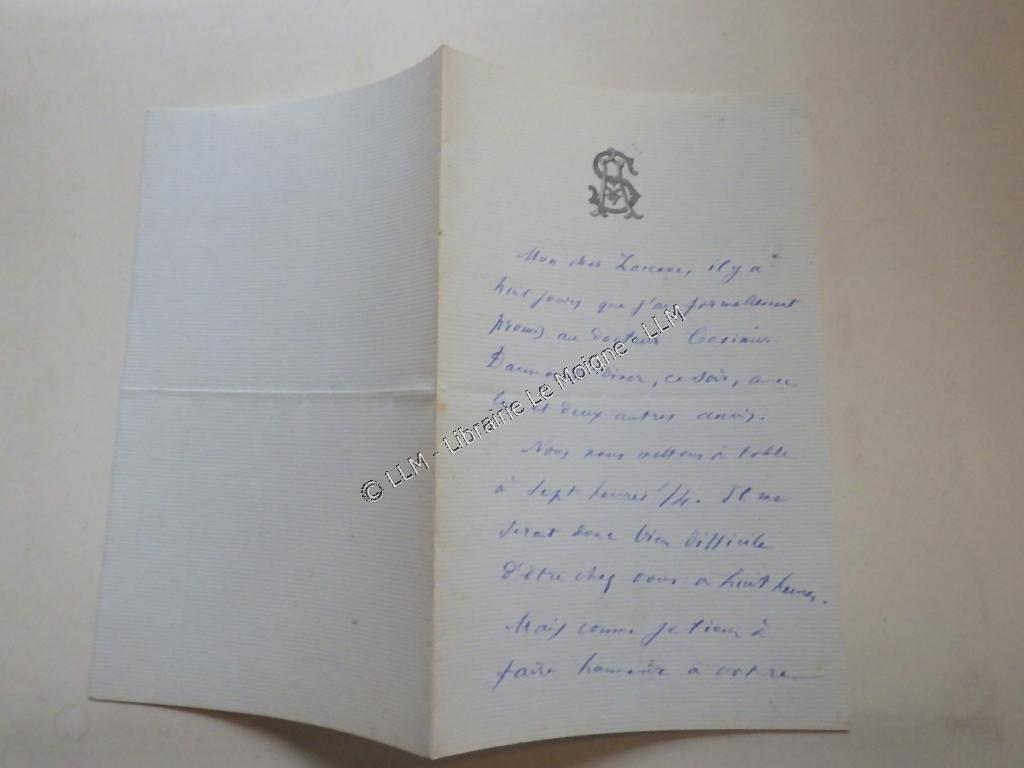 AS
Mon cher il y a
huit jours que j'ai formellement
promis au docteur Casimir
dîner, ce soir, avec
lui et deux autres amis.
Nous nous mettons à table
à sept heures 1/4. Il me
serait donc bien difficile
d'être chez vous à huit heures.
Mais comme je tiens à
faire honneur à votre
© LLM - Librairie Le Moigne - LLM